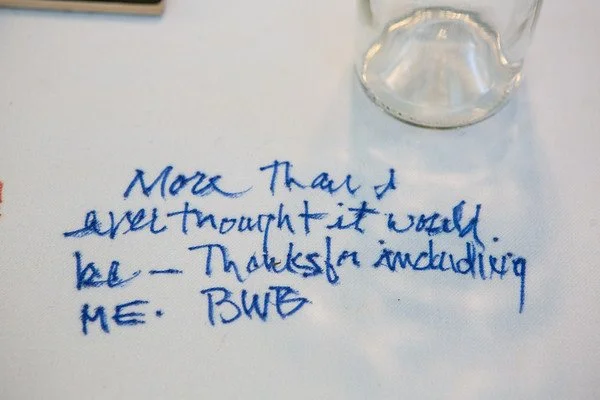 More Than I
ever thought it would
be — Thanks for including
ME. BWB